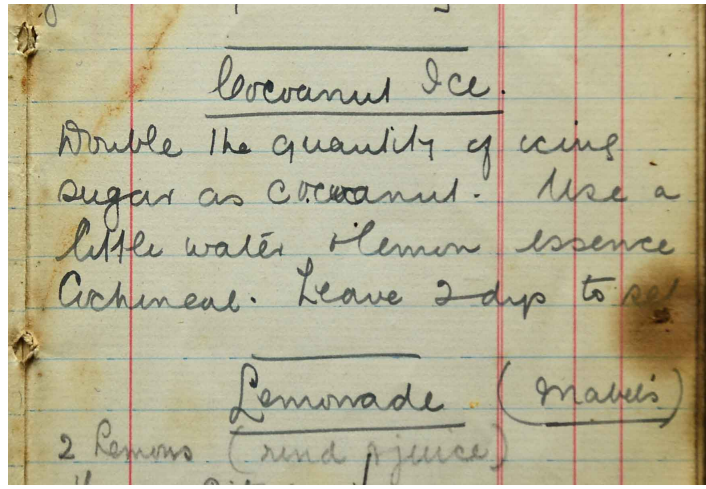 Cocoanut Ice.
Double the quantity of icing
sugar as cocoanut. Use a
little water & lemon essence
Cochineal. Leave 2 dys to set
Lemonade (Mabel's)
2 Lemons (rind & juice)